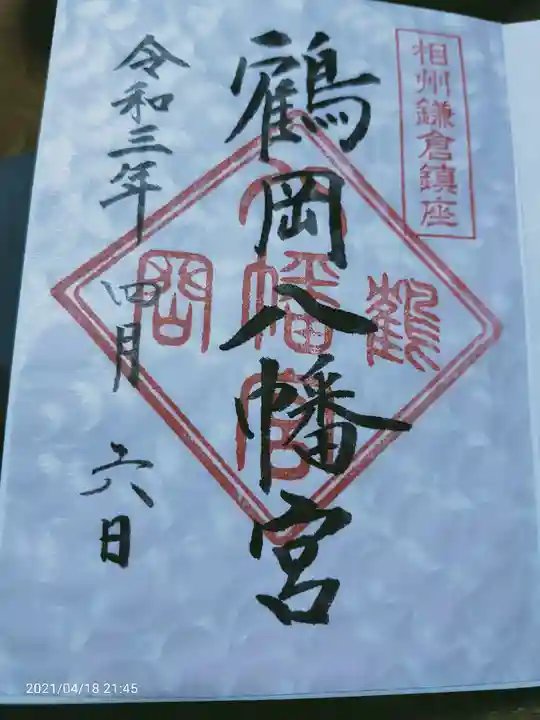 相州鎌倉鎮座
鶴岡八幡宮
鶴
八幡宮
岡
令和三年 四月 六日
2021/04/18 21:45